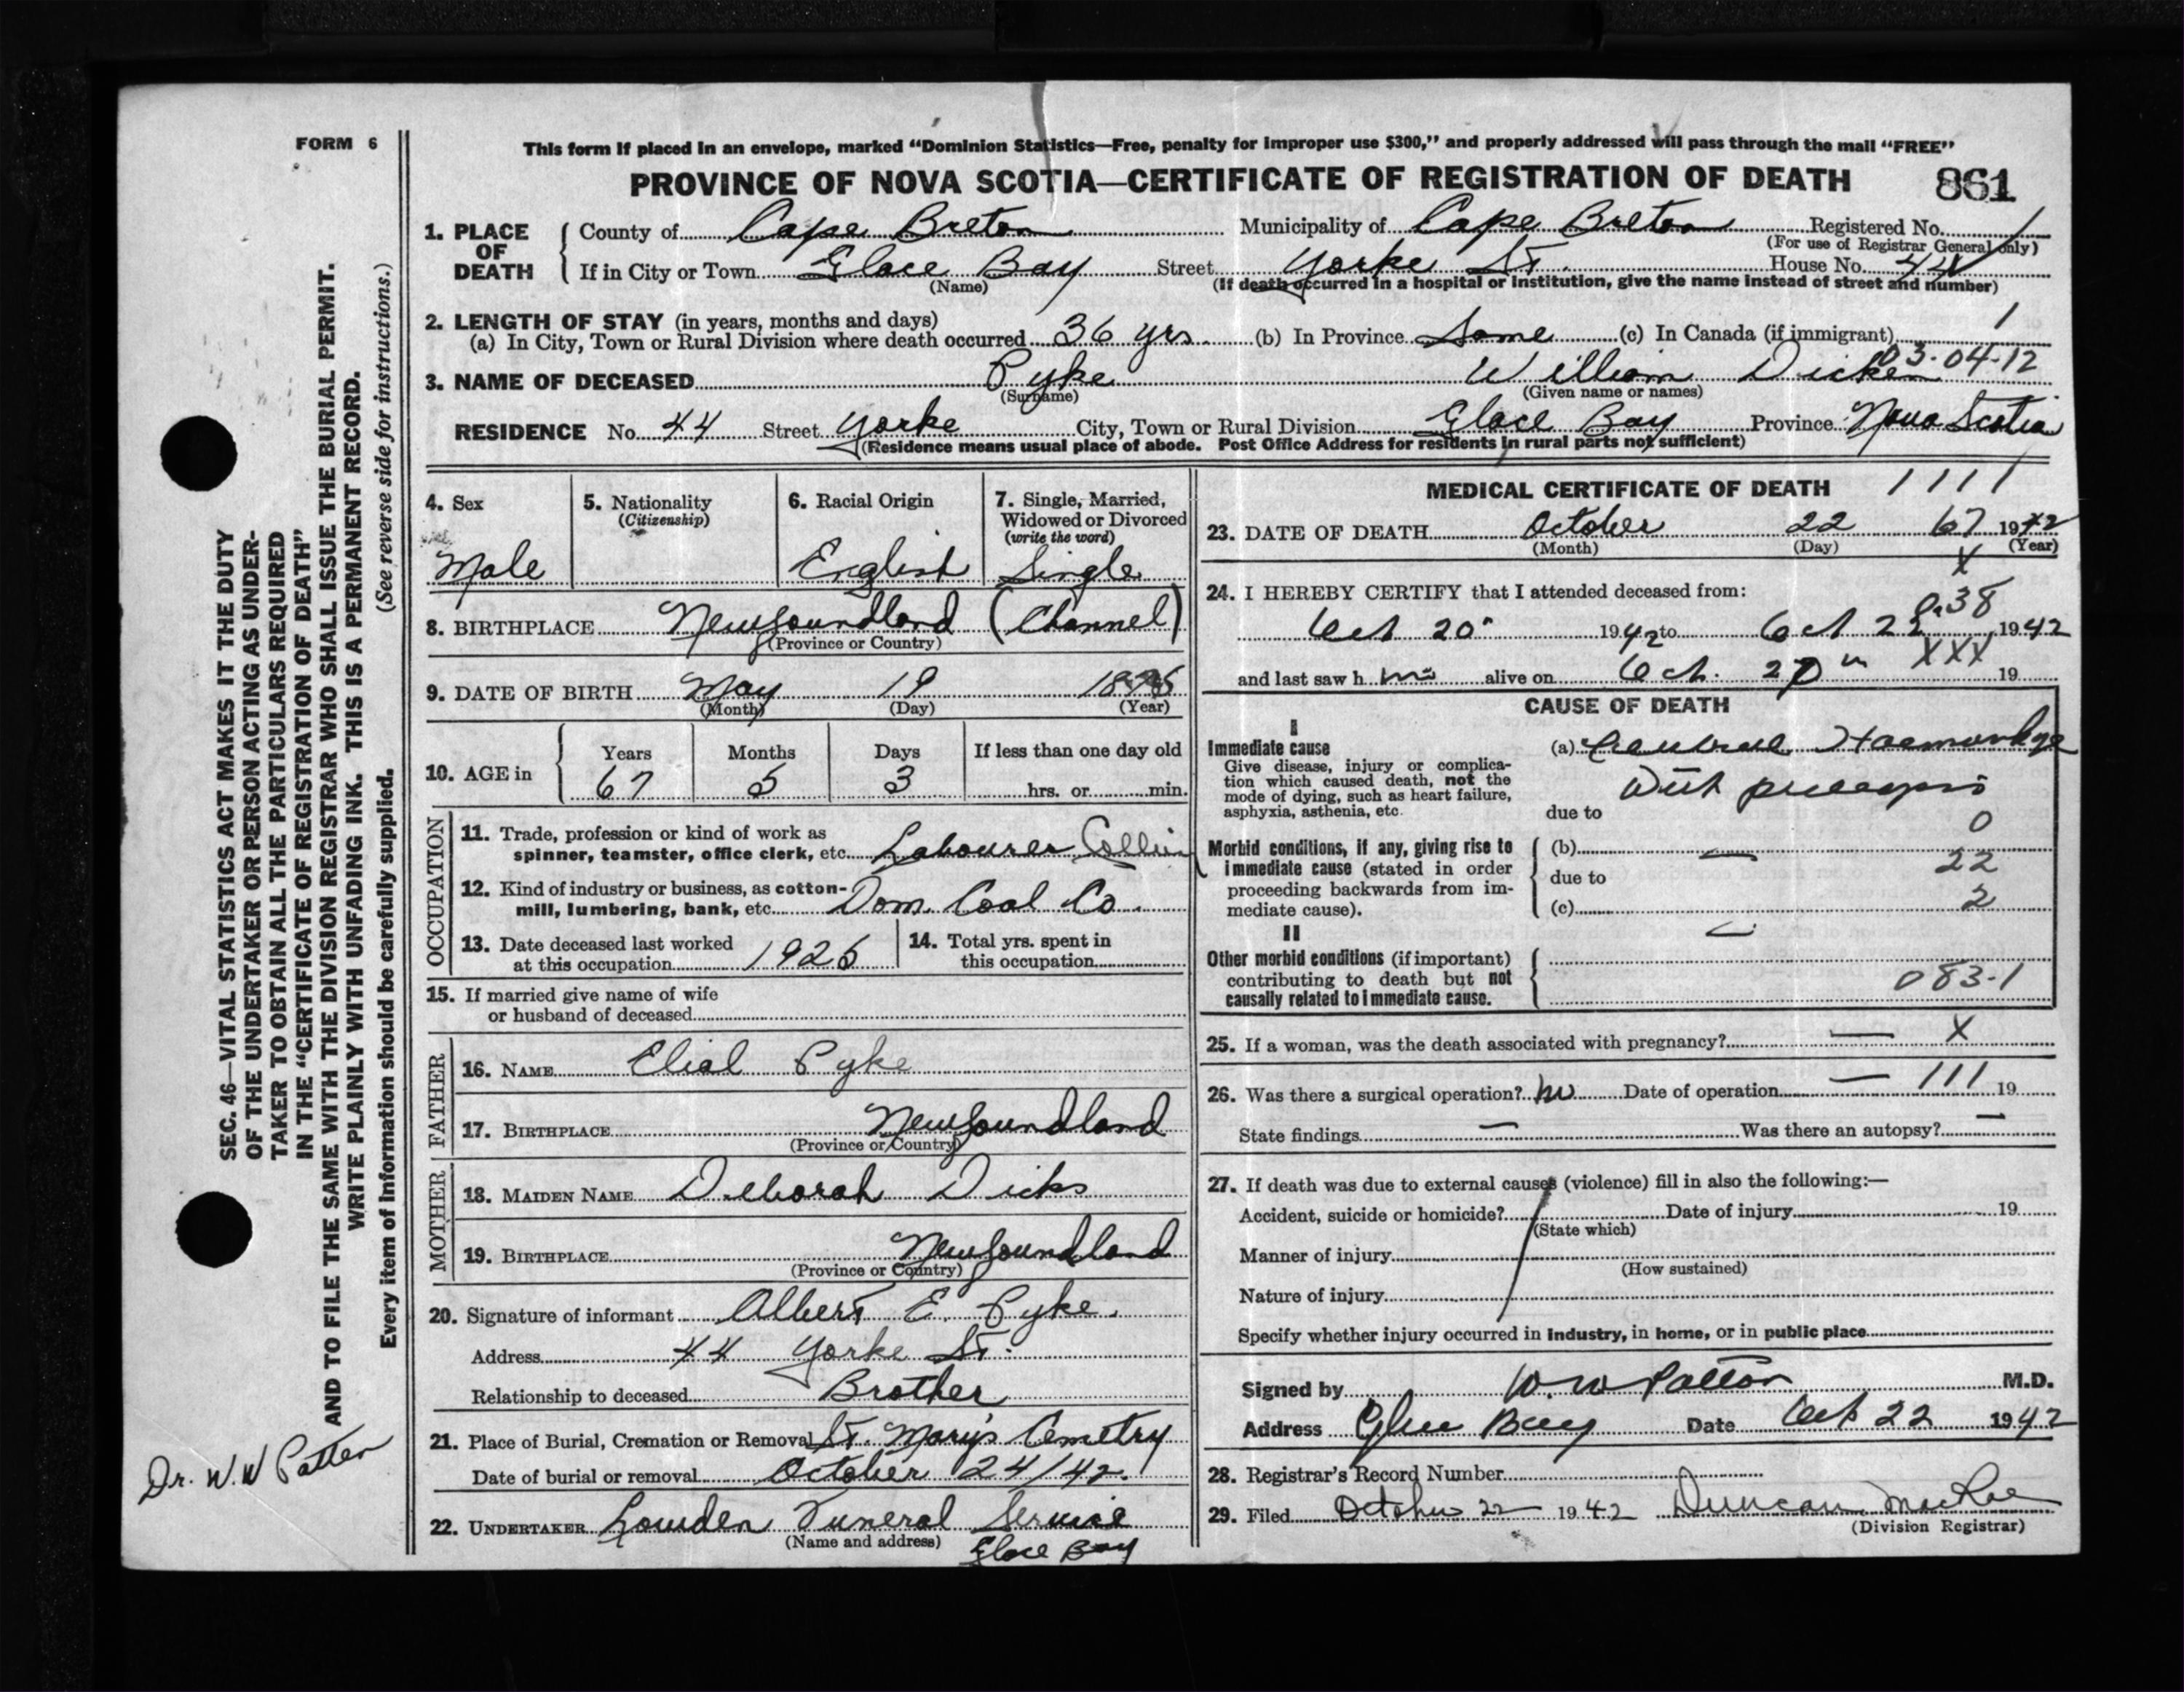 FORM 6
This form if placed in an envelope, marked “Dominion Statistics—Free, penalty for improper use $300,” and properly addressed will pass through the mail “FREE”
PROVINCE OF NOVA SCOTIA—CERTIFICATE OF REGISTRATION OF DEATH 861
1. PLACE OF DEATH County of Cape Breton Municipality of Cape Breton Registered No.
(For use of Registrar General only)
If in City or Town Glace Bay Street Yorke St. House No. 44
(Name) (If death occurred in a hospital or institution, give the name instead of street and number)
2. LENGTH OF STAY (in years, months and days)
(a) In City, Town or Rural Division where death occurred 36 yrs. (b) In Province Same (c) In Canada (if immigrant) 1
03-04-12
3. NAME OF DECEASED Pyke William
(Surname) (Given name or names)
RESIDENCE No. 44 Street Yorke City, Town or Rural Division Glace Bay Province Nova Scotia
(Residence means usual place of abode. Post Office Address for residents in rural parts not sufficient)
4. Sex 5. Nationality (Citizenship) 6. Racial Origin 7. Single, Married, Widowed or Divorced (write the word)
Male English Single
8. BIRTHPLACE Newfoundland (Channel)
(Province or Country)
9. DATE OF BIRTH May 19
(Month) (Day) (Year)
10. AGE in Years Months Days If less than one day old
67 5 3 hrs. or min.
OCCUPATION
11. Trade, profession or kind of work as
spinner, teamster, office clerk, etc. Labourer
12. Kind of industry or business, as cotton-
mill, lumbering, bank, etc. Dom. Coal Co.
13. Date deceased last worked
at this occupation 1925
14. Total yrs. spent in
this occupation
15. If married give name of wife
or husband of deceased
FATHER
16. NAME Elial Pyke
17. BIRTHPLACE Newfoundland
(Province or Country)
MOTHER
18. MAIDEN NAME Deborah Dicks
19. BIRTHPLACE Newfoundland
(Province or Country)
20. Signature of informant Albert E. Pyke.
Address 44 Yorke St.
Relationship to deceased Brother
21. Place of Burial, Cremation or Removal St. Mary's Cemetry
Date of burial or removal October 24/42.
22. UNDERTAKER Lowden Funeral Service
(Name and address) Glace Bay
MEDICAL CERTIFICATE OF DEATH 1111
23. DATE OF DEATH October 22 67 1942
(Month) (Day) (Year)
X
24. I HEREBY CERTIFY that I attended deceased from:
38
Oct 20 1942 to Oct 22 1942
XXX
and last saw h im alive on Oct. 19
CAUSE OF DEATH
I
Immediate cause
Give disease, injury or complica-
tion which caused death, not the
mode of dying, such as heart failure,
asphyxia, asthenia, etc.
(a) Haemorrhge
due to
0
Morbid conditions, if any, giving rise to
immediate cause (stated in order
proceeding backwards from im-
mediate cause).
(b) —
due to 22
(c) 2
II
Other morbid conditions (if important)
contributing to death but not
causally related to immediate cause.
—
083-1
25. If a woman, was the death associated with pregnancy? — X
26. Was there a surgical operation? no Date of operation — 111 19
State findings — Was there an autopsy? —
27. If death was due to external causes (violence) fill in also the following:—
Accident, suicide or homicide? Date of injury 19
(State which)
Manner of injury
(How sustained)
Nature of injury
Specify whether injury occurred in industry, in home, or in public place
Signed by W. W Patton M.D.
Address Glace Bay Date Oct 22 1942
28. Registrar's Record Number
29. Filed October 22 1942 Duncan MacRae
(Division Registrar)
SEC. 46—VITAL STATISTICS ACT MAKES IT THE DUTY
OF THE UNDERTAKER OR PERSON ACTING AS UNDER-
TAKER TO OBTAIN ALL THE PARTICULARS REQUIRED
IN THE “CERTIFICATE OF REGISTRATION OF DEATH”
AND TO FILE THE SAME WITH THE DIVISION REGISTRAR WHO SHALL ISSUE THE BURIAL PERMIT.
WRITE PLAINLY WITH UNFADING INK. THIS IS A PERMANENT RECORD.
Every item of information should be carefully supplied. (See reverse side for instructions.)
Dr. W.W Patten